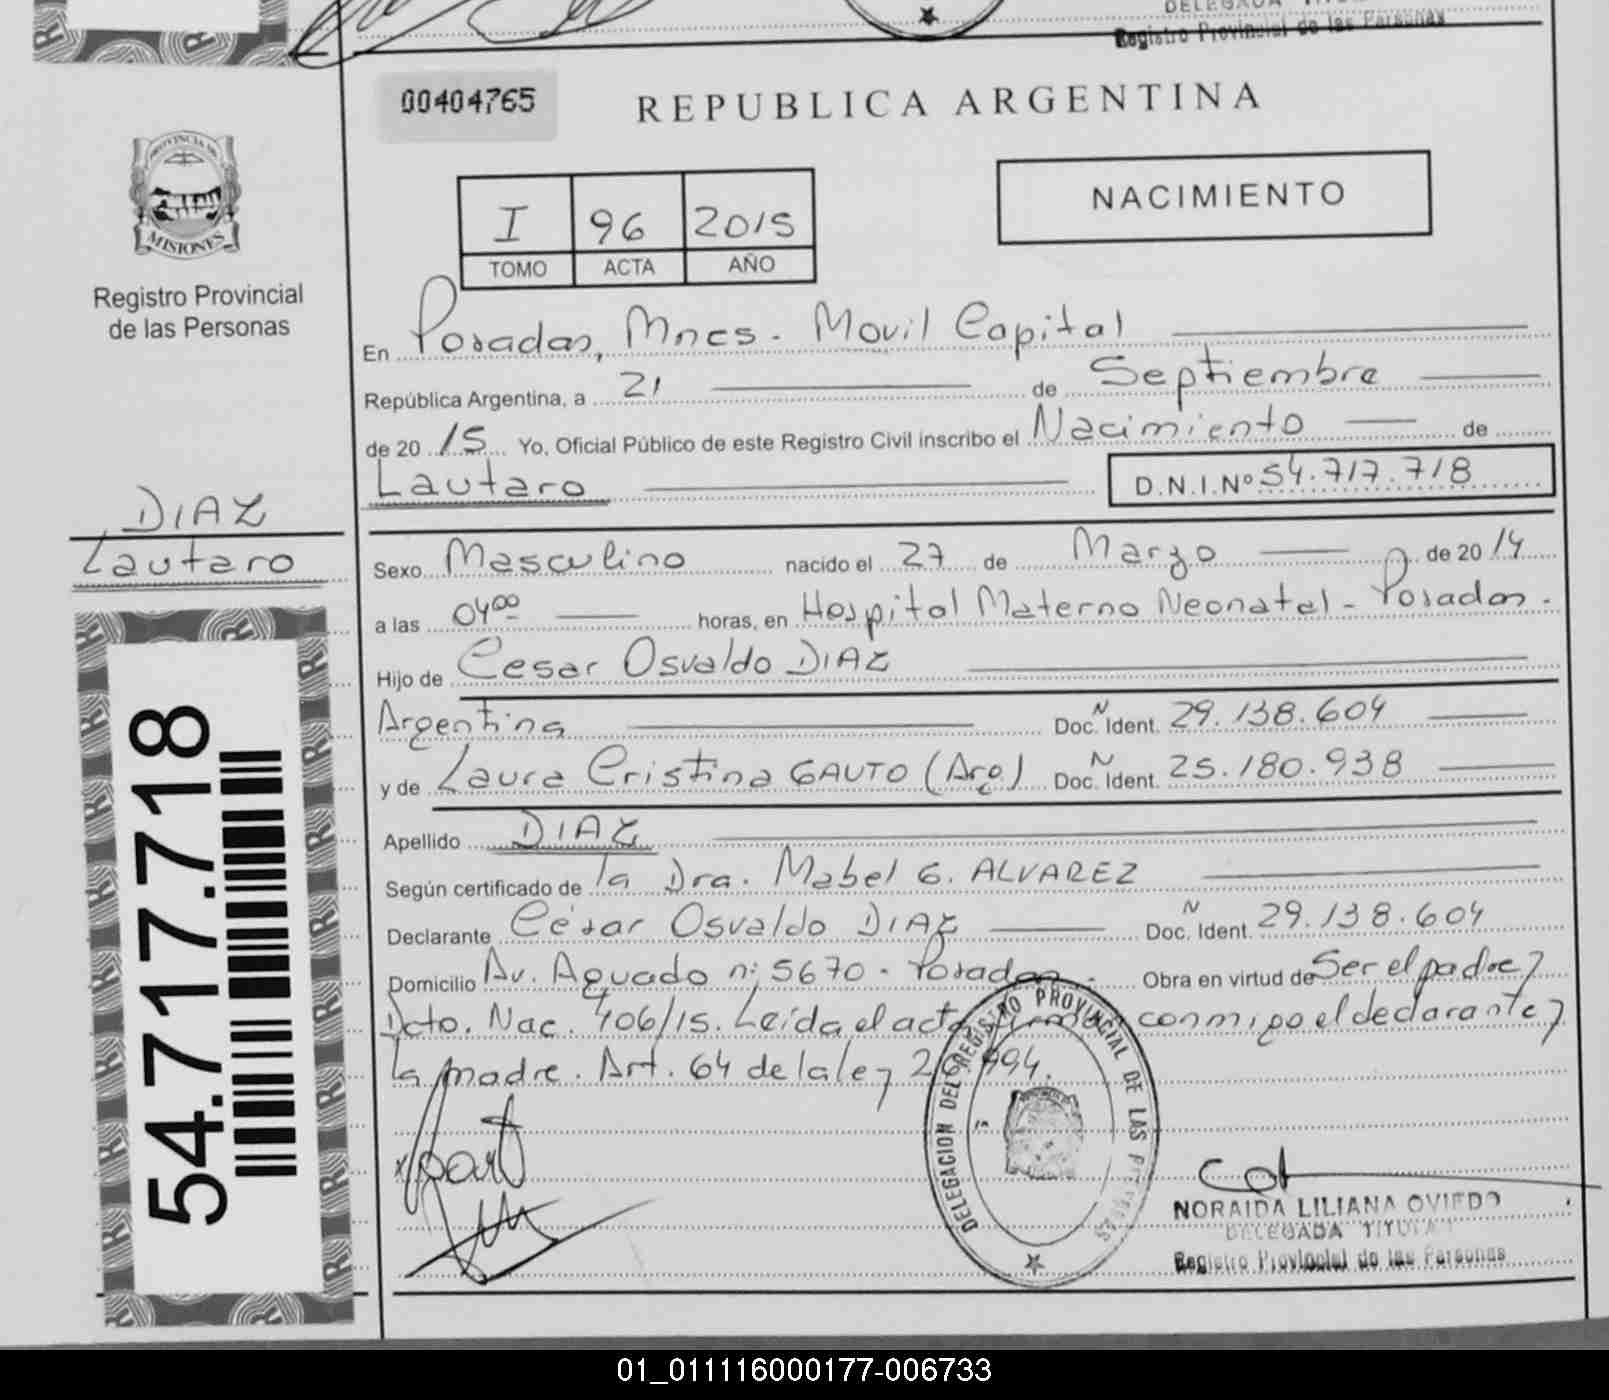 DELEGADA
Registro Provincial de las Personas
00404765
REPUBLICA ARGENTINA
PROVINCIA DE
MISIONES
Registro Provincial
de las Personas
I 96 2015
TOMO ACTA AÑO
NACIMIENTO
En Posadas, Mnes. Movil Capital
República Argentina, a 21 de Septiembre
de 2015 Yo, Oficial Público de este Registro Civil inscribo el Nacimiento de
Lautaro D.N.I.Nº 54.717.718
DIAZ
Lautaro
Sexo Masculino nacido el 27 de Marzo de 2014
a las 04 00 horas, en Hospital Materno Neonatal - Posadas.
Hijo de Cesar Osvaldo DIAZ
Argentina Doc. N Ident. 29.138.604
y de Laura Cristina GAUTO (Arg.) Doc. N Ident. 25.180.938
Apellido DIAZ
Según certificado de la Dra. Mabel G. ALVAREZ
Declarante César Osvaldo DIAZ Doc. N Ident. 29.138.604
Domicilio Av. Aguado n: 5670 - Posadas. Obra en virtud de Ser el padre y
Dcto. Nac. 406/15. Leída el acta firman conmigo el declarante y
la madre. Art. 64 de la ley 26.994.
54.717.718
DELEGACION DEL REGISTRO PROVINCIAL DE LAS PERSONAS
NORAIDA LILIANA OVIEDO
DELEGADA TITULAR
Registro Provincial de las Personas
01_011116000177-006733